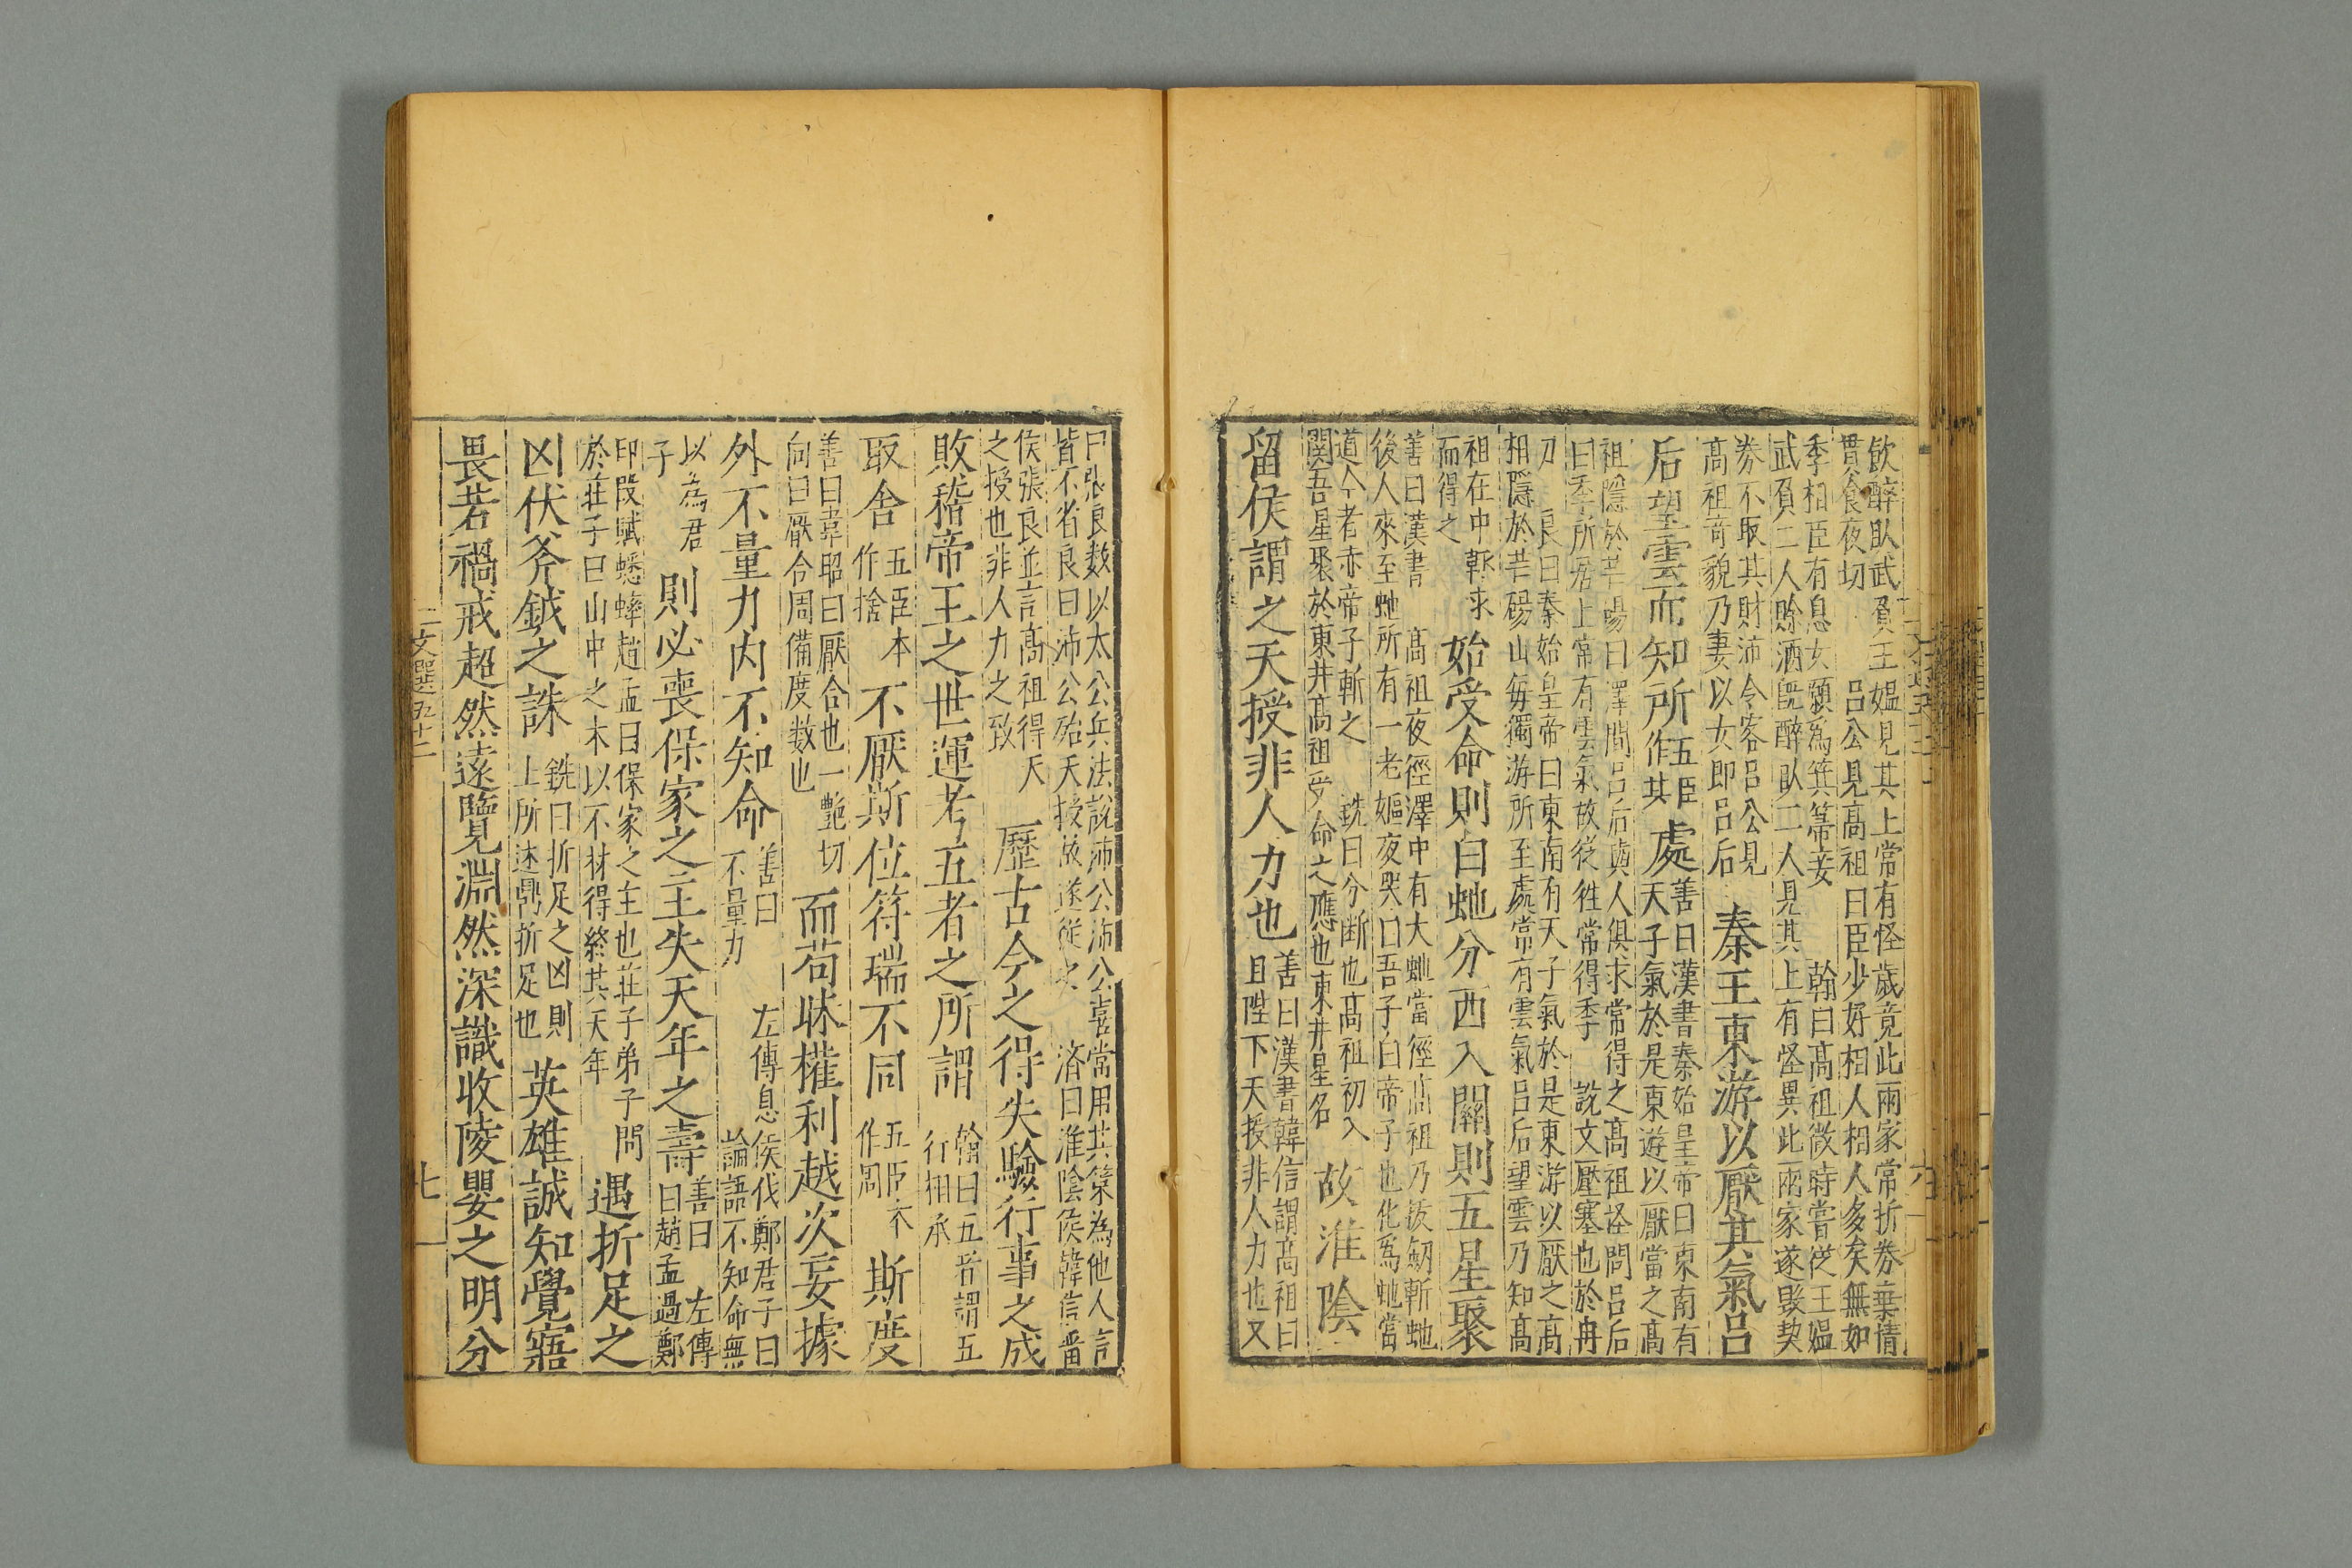 飲醉臥武負王媼見其上常有怪歲竟此兩家常折券棄債
貰食夜切　呂公見高祖曰臣少好相人相人多矣無如
季相臣有息女願爲箕箒妾　翰曰高祖微時嘗從王媼
武負二人賒酒旣醉臥二人見其上有怪異此兩家遂毀契
券不取其財沛令客呂公見
高祖奇貌乃妻以女卽呂后
秦王東游以厭其氣呂
后望雲而知所
五臣
作其
處
善曰漢書秦始皇帝曰東南有
天子氣於是東遊以厭當之高
祖隱於芒碭曰澤間呂后與人俱求常得之高祖怪問呂后
曰季所居上常有雲氣故從徃常得季　說文壓塞也於冉
刀　良曰秦始皇帝曰東南有天子氣於是東游以厭之高
相隱於芒碭山每獨游所至處常有雲氣呂后望雲乃知高
祖在中斬求
而得之
始受命則白虵分西入關則五星聚
善曰漢書　高祖夜徑澤中有大虵當徑高祖乃拔劒斬虵
後人來至虵所有一老嫗夜哭曰吾子白帝子也化爲虵當
道今者赤帝子斬之　銑曰分断也高祖初入
関吾星聚於東井高祖受命之應也東井星名
故淮陰
留侯謂之天授非人力也
善曰漢書韓信謂高祖曰
且陛下天授非人力也又
曰張良数以太公兵法說沛公沛公喜常用其策為他人言
皆不省良曰沛公殆天授故遂從之　濟曰淮陰侯韓信畱
侯張良並言高祖得天
之授也非人力之致
歷古今之得失驗行事之成
敗稽帝王之世運考五者之所謂
翰曰五者謂五
行相承
取舍
五臣本
作捨
不厭斯位符瑞不同
五臣本
作周
斯度
善曰韋昭曰厭合也一艶切
向曰厭合周備度数也
而苟昧權利越次妄據
外不量力内不知命
善曰　左傳息侯伐鄭君子曰
不量力　論語不知命無
以為君
子
則必喪保家之主失天年之壽
善曰　左傳
曰趙孟過鄭
印段賦蟋蟀趙孟曰保家之主也莊子弟子問
於莊子曰山中之木以不材得終其天年
遇折足之
凶伏斧鉞之誅
銑曰折足之凶則
上所述鼎折足也
英雄誠知覺寤
畏若禍戒超然遠覽淵然深識收陵嬰之明分
文選五十二
七